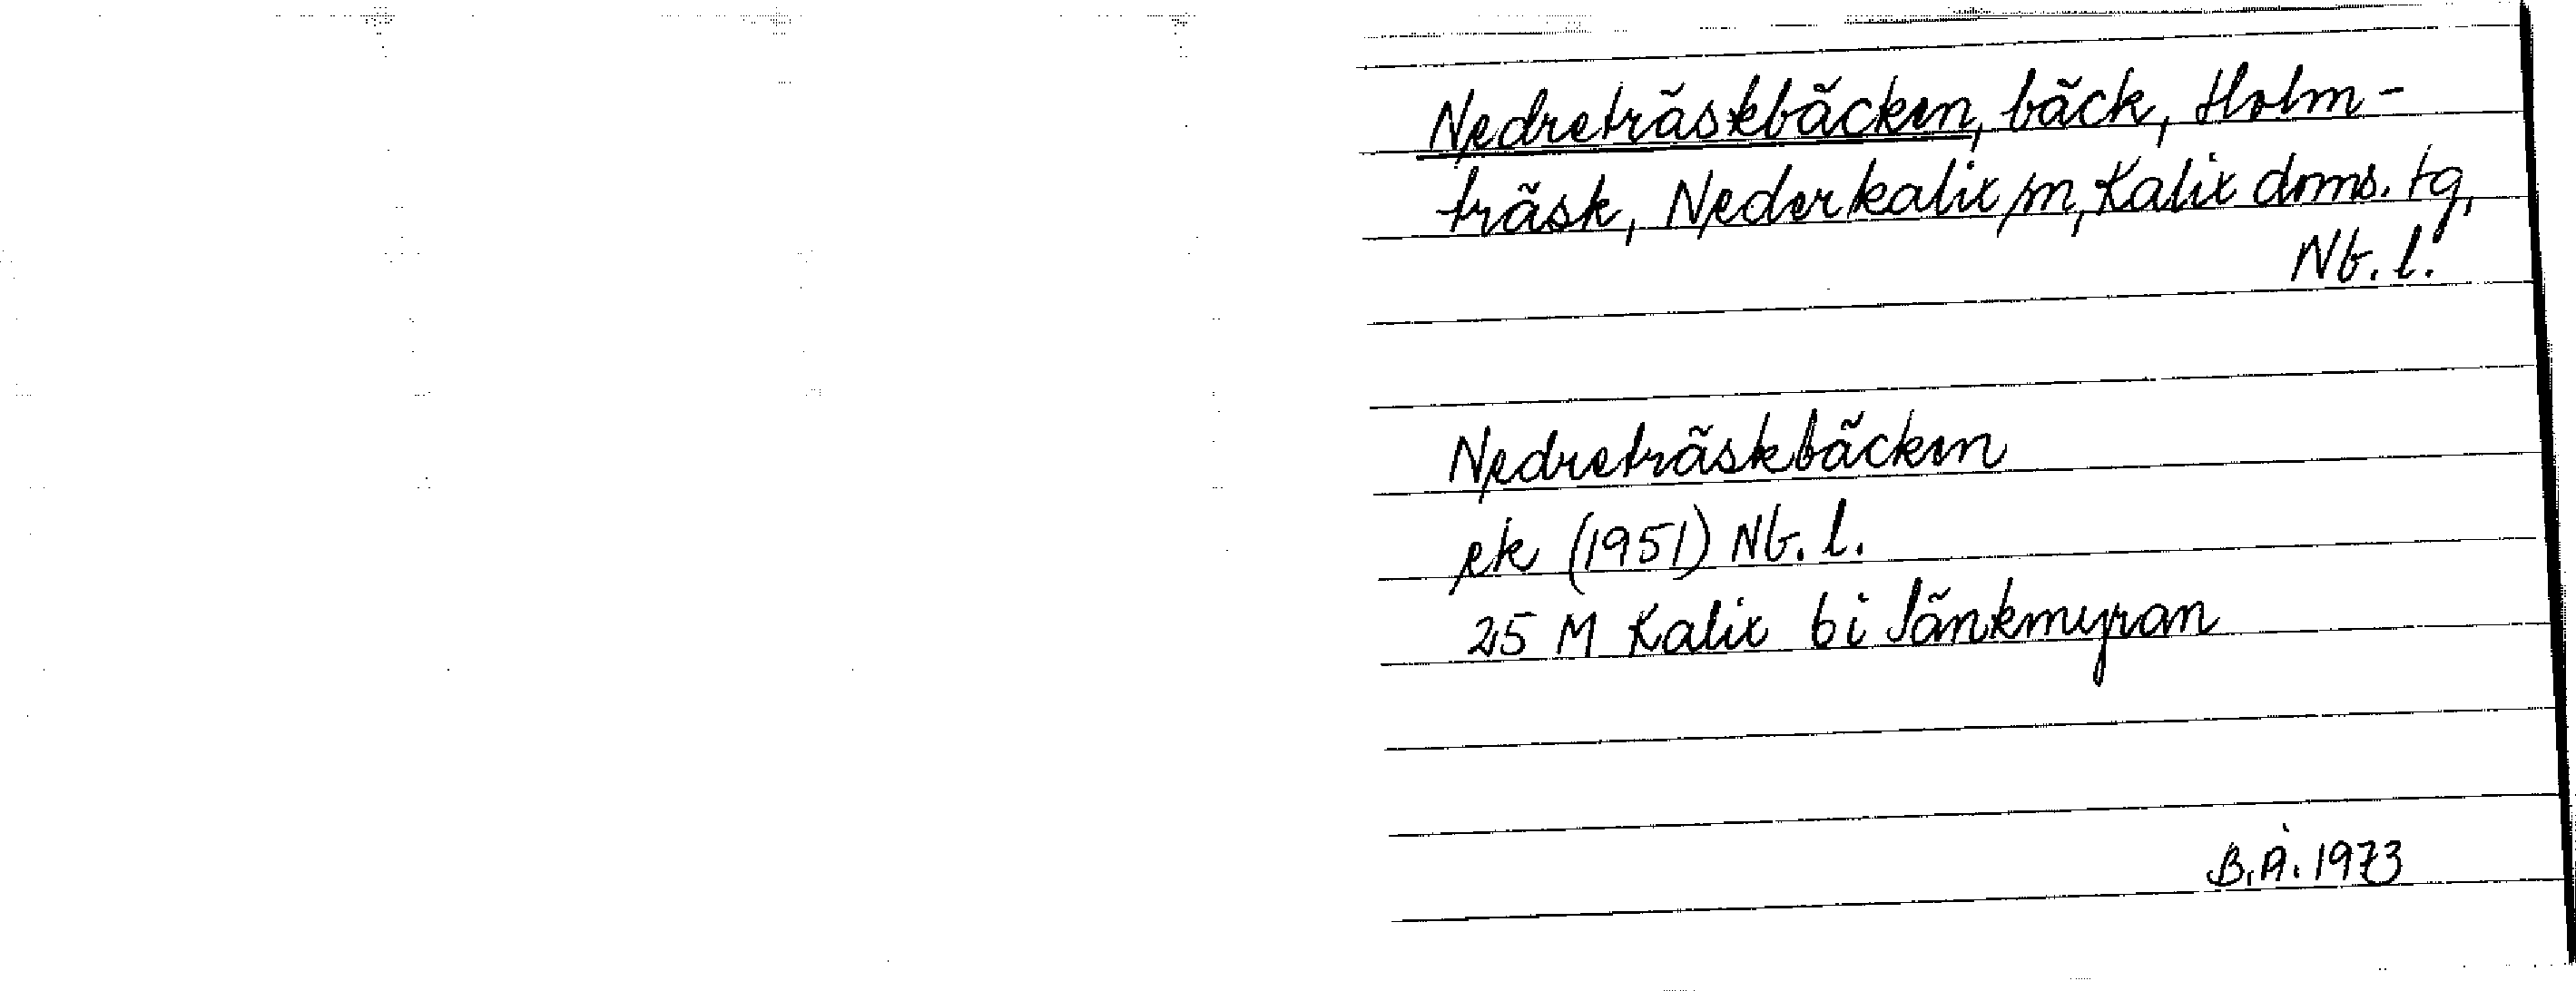 Nedreträskbäcken, bäck, Holm-
träsk, Nederkalix sn, Kalix doms. tg,
Nb. l.
Nedreträskbäcken
ek (1951) Nb. l.
25 M Kalix 6 i Jänkmyran
B.Å. 1973